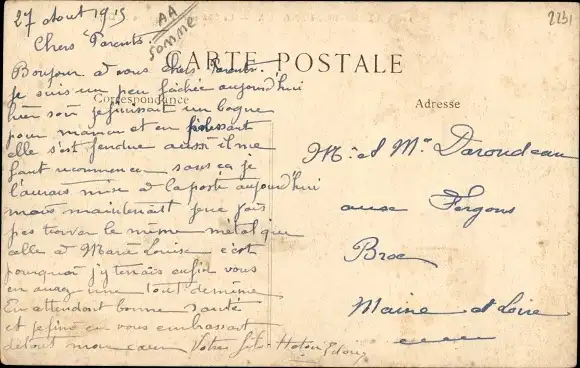 27 Aout 1915
AA
Somme
2231
Chers Parents
CARTE POSTALE
Bonjour a vous chers Parents.
Je suis un peu fachée aujourd'hui
Correspondance
Adresse
hier soir je finissant un bague
pour maman et en polissant
elle s'est fendue aussi il me
faut recommencer sans ça je
l'aurais mise a la poste aujourd'hui
mais maintenant je ne fais
pas trouver le meme métal que
celle a Marie Louise c'est
pourquoi j'y tenais enfin vous
en aurez une tout de même
En attendant bonne santé
et je finis en vous embrassant
de tout mon cœur Votre fils
M. et Me Daroudeau
aux Forgons
Broc
Maine et Loire